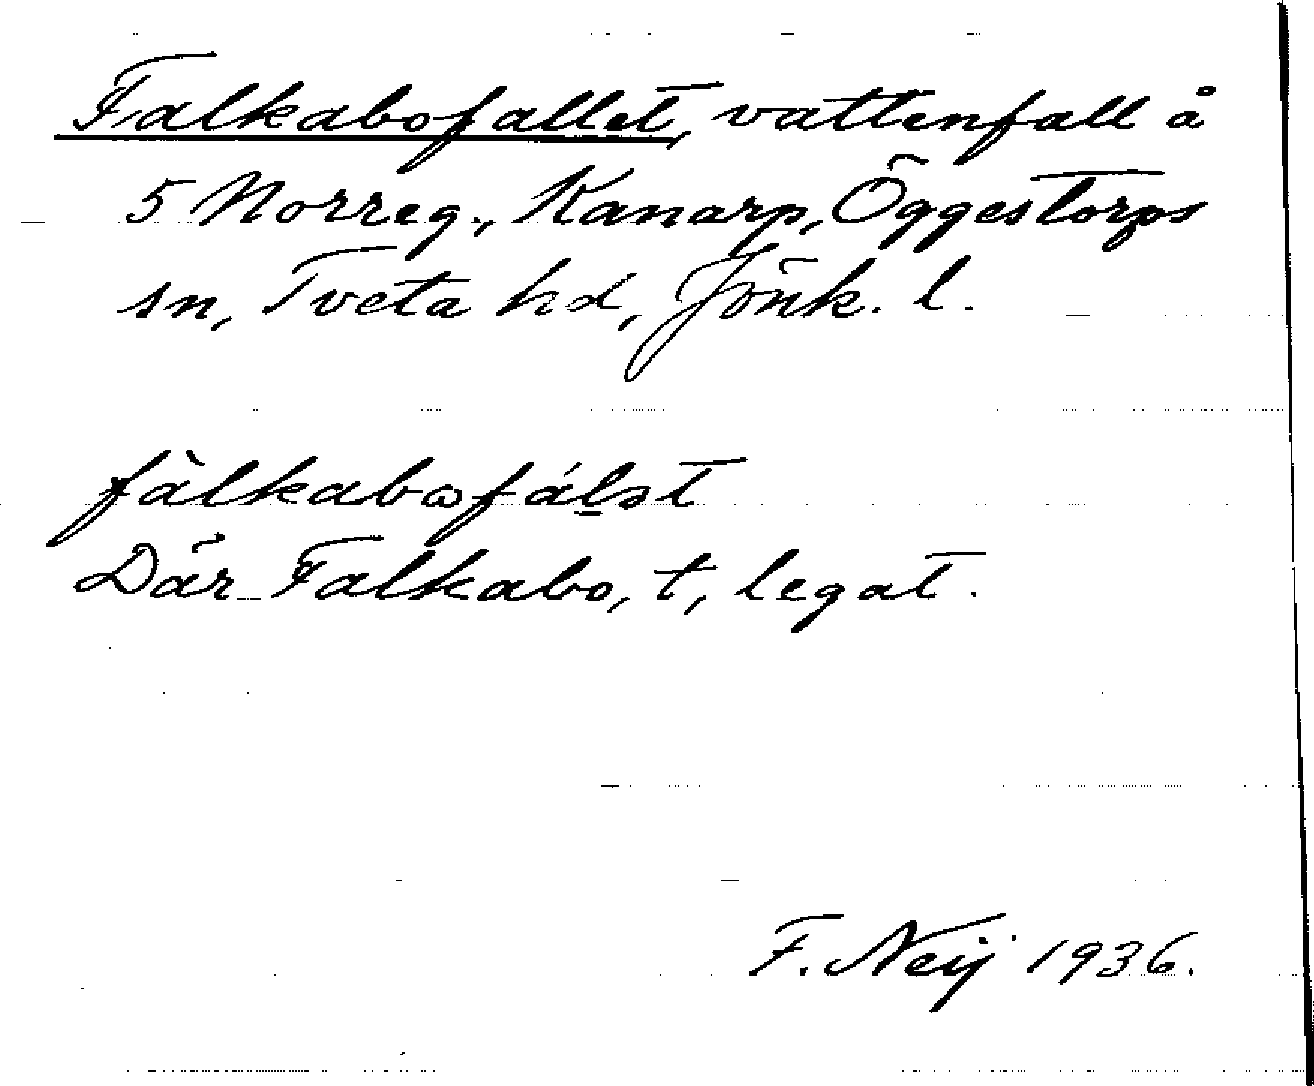 Falkabofallet, vattenfall å
5 Norreg., Kanarp, Öggestorps
sn, Tveta hd, Jönk. l.
fàlkabωfál̲ət
Där Falkabo, t, legat.
F. Neij 1936.